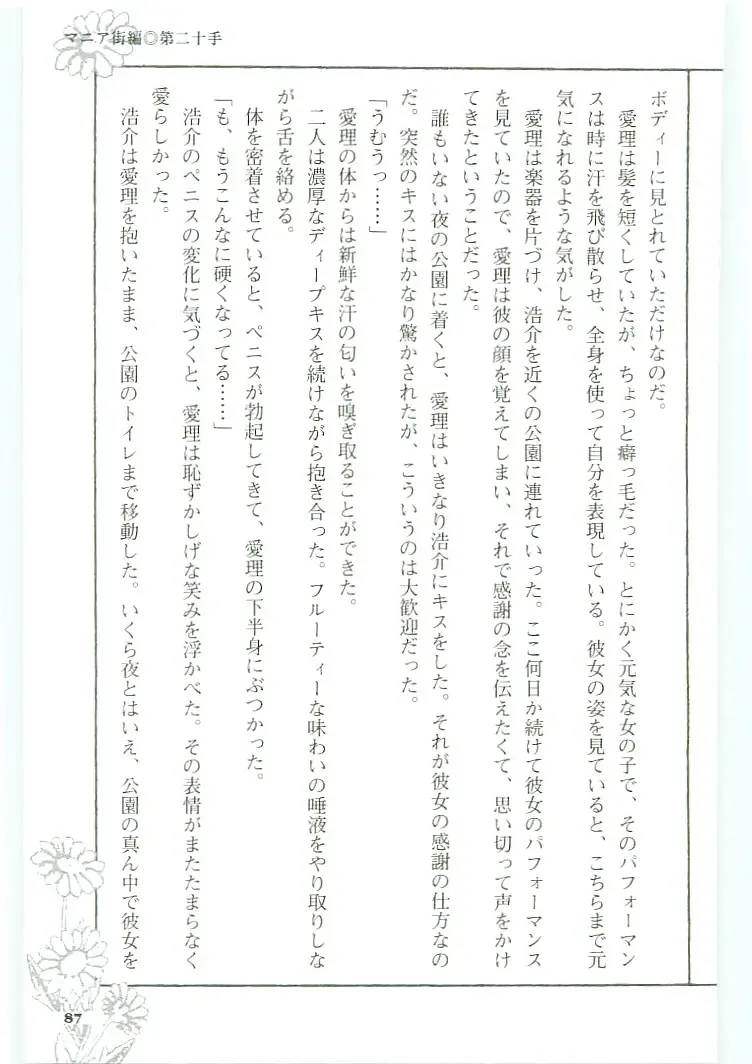 マニア街編◎第二十手
ボディーに見とれていただけなのだ。
愛理は髪を短くしていたが、ちょっと癖っ毛だった。とにかく元気な女の子で、そのパフォーマン
スは時に汗を飛び散らせ、全身を使って自分を表現している。彼女の姿を見ていると、こちらまで元
気になれるような気がした。
愛理は楽器を片づけ、浩介を近くの公園に連れていった。ここ何日か続けて彼女のパフォーマンス
を見ていたので、愛理は彼の顔を覚えてしまい、それで感謝の念を伝えたくて、思い切って声をかけ
てきたということだった。
誰もいない夜の公園に着くと、愛理はいきなり浩介にキスをした。それが彼女の感謝の仕方なの
だ。突然のキスにはかなり驚かされたが、こういうのは大歓迎だった。
「うむうっ……」
愛理の体からは新鮮な汗の匂いを嗅ぎ取ることができた。
二人は濃厚なディープキスを続けながら抱き合った。フルーティーな味わいの唾液をやり取りしな
がら舌を絡める。
体を密着させていると、ペニスが勃起してきて、愛理の下半身にぶつかった。
「も、もうこんなに硬くなってる……」
浩介のペニスの変化に気づくと、愛理は恥ずかしげな笑みを浮かべた。その表情がまたたまらなく
愛らしかった。
浩介は愛理を抱いたまま、公園のトイレまで移動した。いくら夜とはいえ、公園の真ん中で彼女を
87